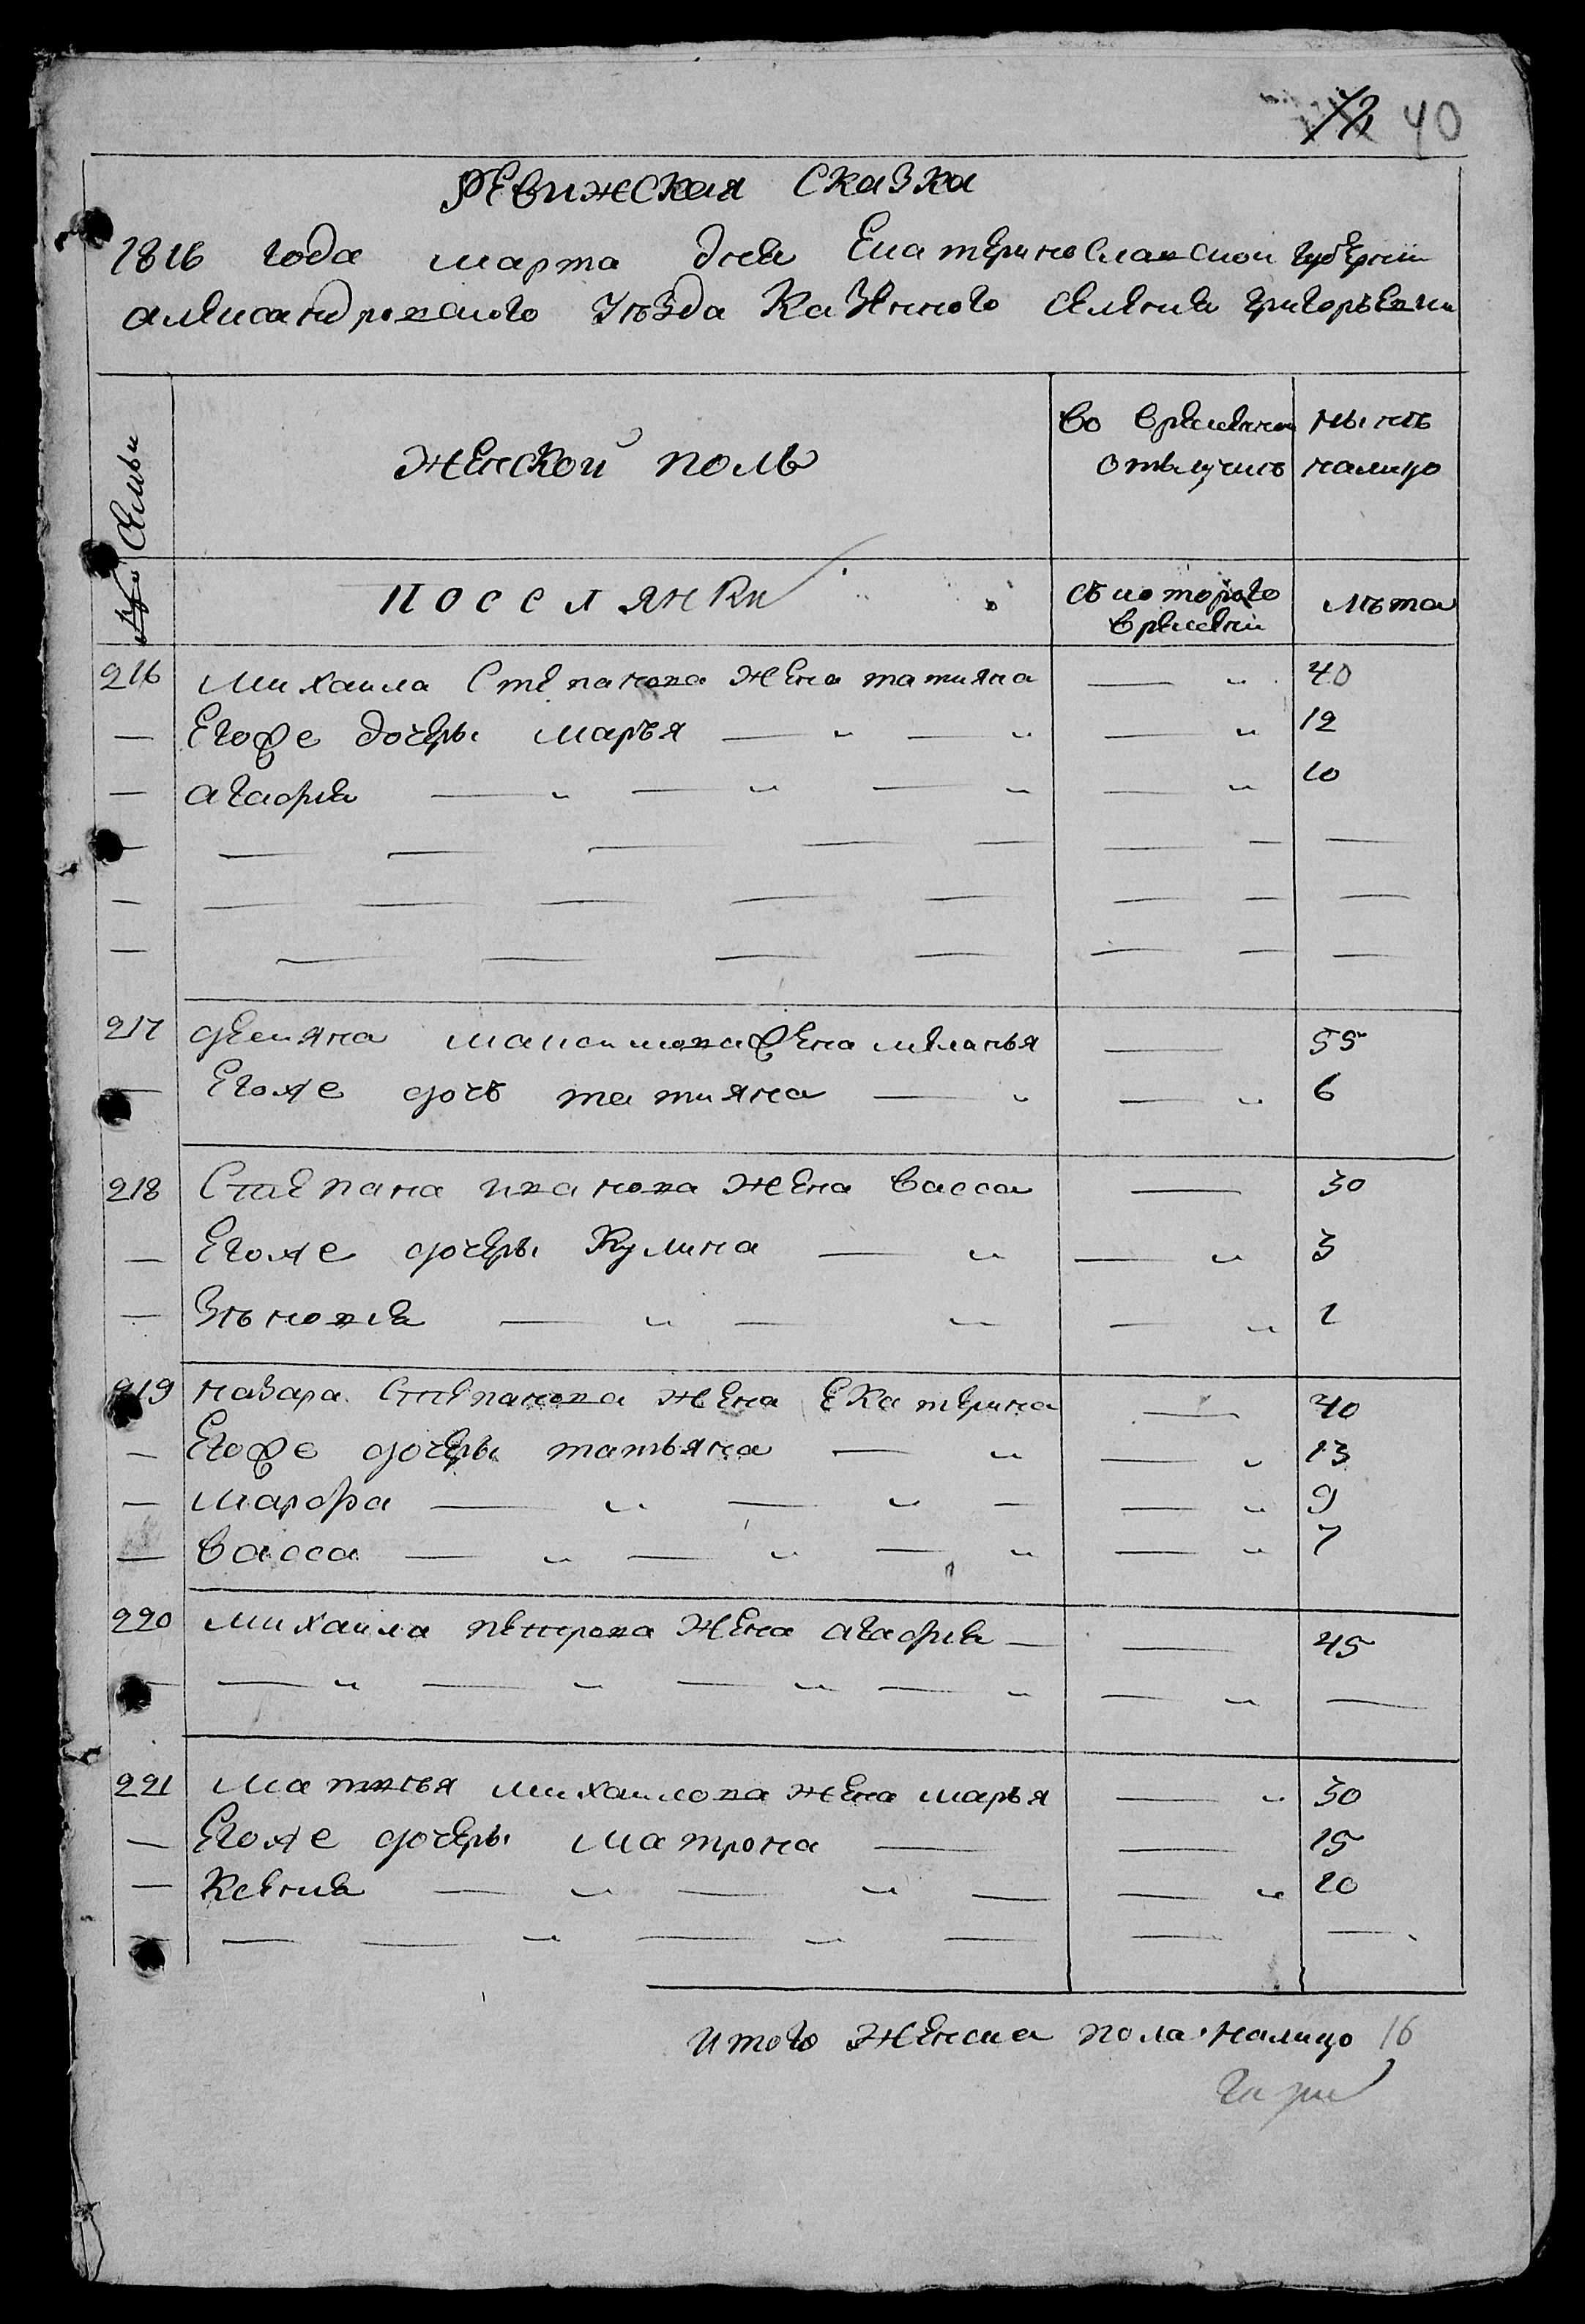 72 40
Ревижская Сказка
1816 года марта дня Екатеринославской губернии
александровского Уѣзда Казенного селения григорьевки
№ Семьи
женской полъ
во временной
отълучкѣ
нынѣ
налицо
поселянки
съ которого
времени
лѣта
216 михаила Степанова жена татияна — " 40
— Егоже дочеры марья — " — " — " 12
— агафия — " — " — " — " 10
— — — — — — — — —
— — — — — — — — —
— — — — — — — —
217 демяна максимова жена меланья — 55
— Егоже дочь татияна — " — " 6
218 Степана иванова жена васса — 30
— Егоже дочеры Кулина — " — " 3
— Зѣновия — " — " — " 1
219 назара Степанова жена Екатерина — 40
— Егоже дочеры татьяна — " — " 13
— марфа — " — " — — " 9
— васса — " — " — " — " 7
220 михаила петрова жена агафия — — 45
— — " — " — " — " — " —
221 матвѣя михаилова жена марья — " 30
— Егоже дочеры матрона — — 15
— Ксения — " — " — — " 10
— — — " — " — — —
итого женска пола налицо 16